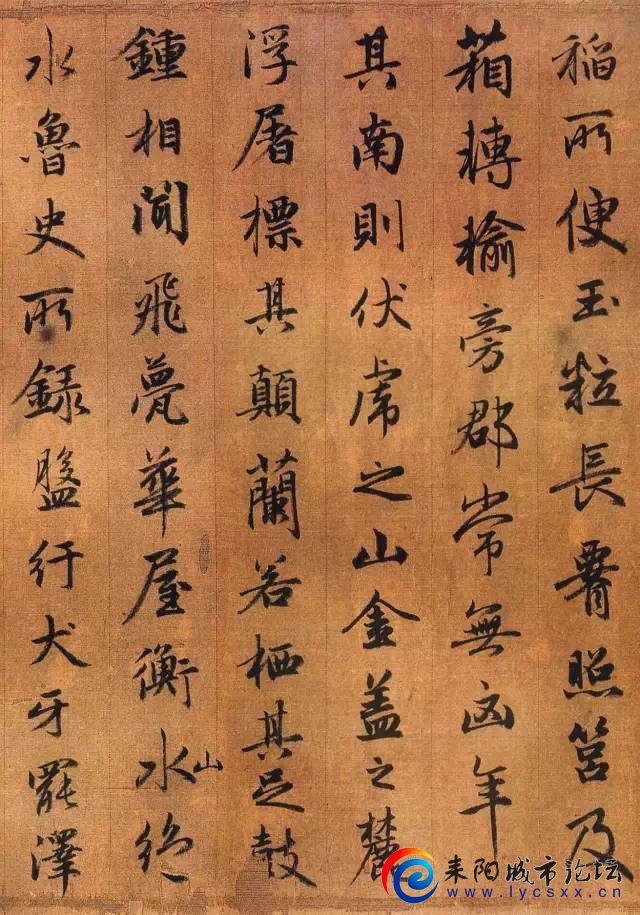 稻所便玉粒長腰照筥及
箱轉輸旁郡常無凶年
其南則伏虎之山金盖之麓
浮屠標其顛蘭若栖其足鼓
鍾相聞飛甍華屋衡水山絕
水魯史所録盤紆犬牙罷澤
耒阳城市论坛
www.lycsxx.cn